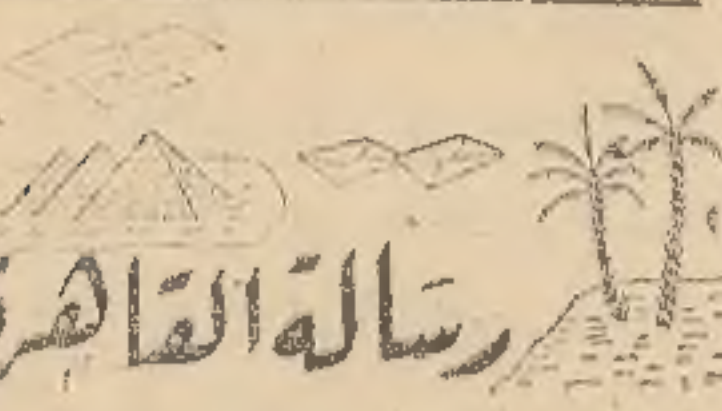 رسالة القاهرة